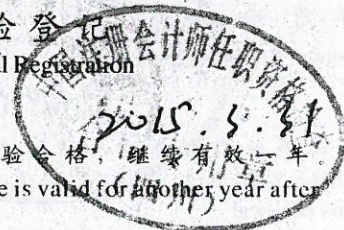 验登记
l Registration
中国注册会计师任职资格
2015.3.31
验合格，继续有效一年。
e is valid for another year after